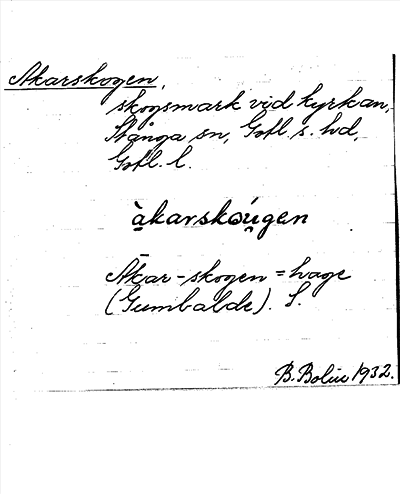 Akarskogen,
skogsmark vid kyrkan,
Stånga sn, Gotl. s. hd,
Gotl. l.
àkarskoúgen
Akar-skogen = hage
(Gumbalde). S.
B. Bolin 1932.